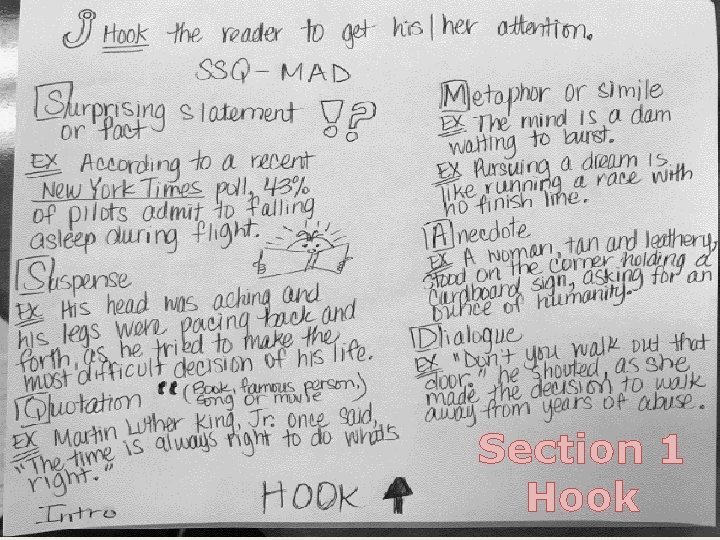 Hook the reader to get his/her attention.
SSQ - MAD
Surprising statement !?
or fact
EX According to a recent
New York Times poll, 43%
of pilots admit to falling
asleep during flight.
Suspense
EX His head was aching and
his legs were pacing back and
forth, as he tried to make the
most difficult decision of his life.
Quotation " (Book, famous person,
song or movie)
EX Martin Luther King, Jr. once said,
"The time is always right to do what's
right."
Metaphor or simile
EX The mind is a dam
waiting to burst.
EX Pursuing a dream is
like running a race with
no finish line.
Anecdote
EX A woman, tan and leathery,
stood on the corner holding a
cardboard sign, asking for an
ounce of humanity.
Dialogue
EX "Don't you walk out that
door." he shouted, as she
made the decision to walk
away from years of abuse.
HOOK
Intro
Section 1
Hook